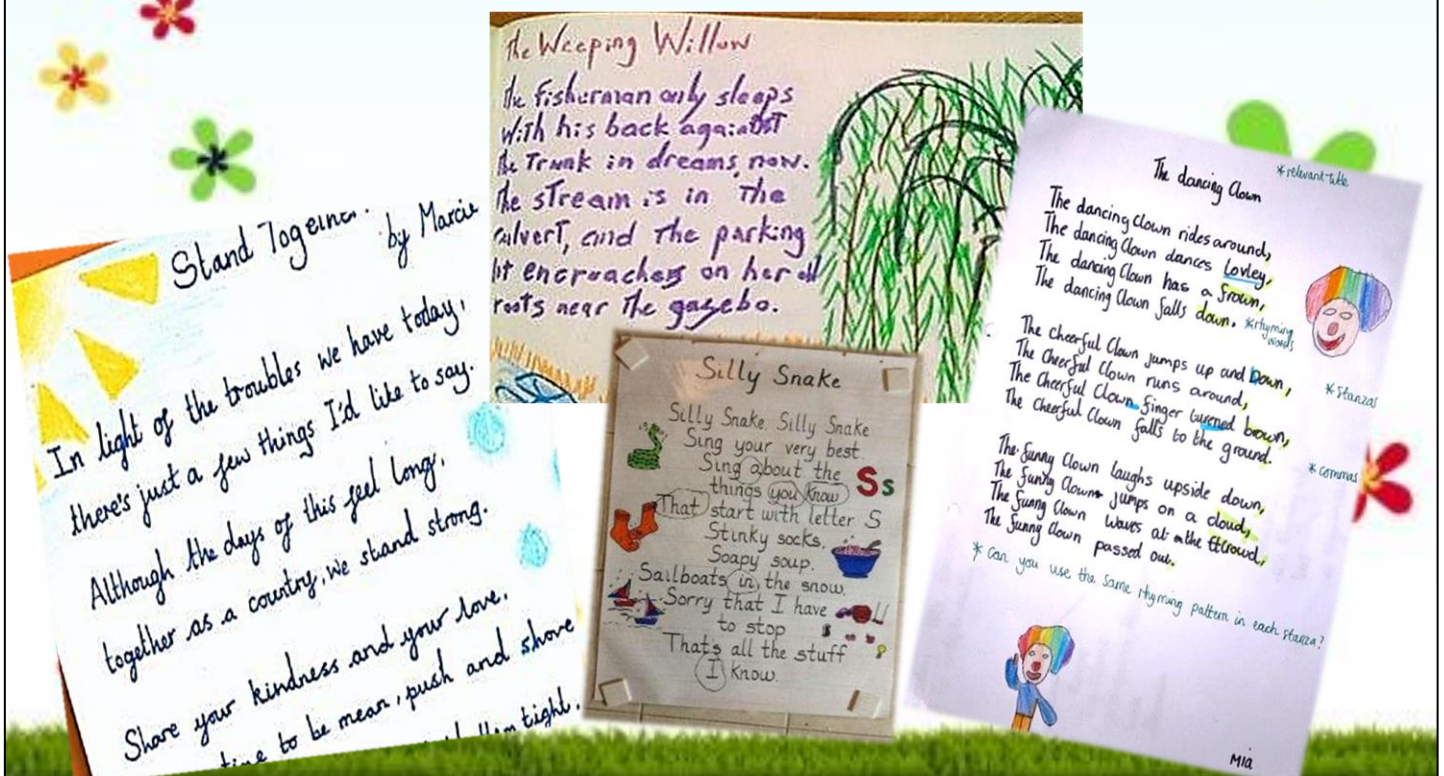 Stand Together
by Marcie
In light of the troubles we have today,
there's just a few things I'd like to say.
Although the days of this feel long,
together as a country, we stand strong.
Share your kindness and your love,
time to be mean, push and shove
tight.
The Weeping Willow
The fisherman only sleeps
With his back against
the Trunk in dreams, now.
The stream is in The
culvert, and The parking
lot encroaches on her old
roots near The gazebo.
Silly Snake
Silly Snake. Silly Snake
Sing your very best.
Sing about the
things you know
Ss
That start with letter S
Stinky socks.
Soapy soup.
Sailboats in the snow.
Sorry that I have
to stop
That's all the stuff
I know.
The dancing Clown
*relevant title
The dancing Clown rides around,
The dancing Clown dances Lovley,
The dancing Clown has a frown,
The dancing Clown falls down.
*rhyming words
The cheerful Clown jumps up and Down,
The Cheerful Clown runs around,
The Cheerful Clown finger turned brown,
The Cheerful Clown falls to the ground.
*Stanzas
*commas
The funny Clown laughs upside down,
The funny Clown jumps on a cloud,
The funny Clown waves at the crowd,
The funny Clown passed out.
* Can you use the same rhyming pattern in each stanza?
Mia